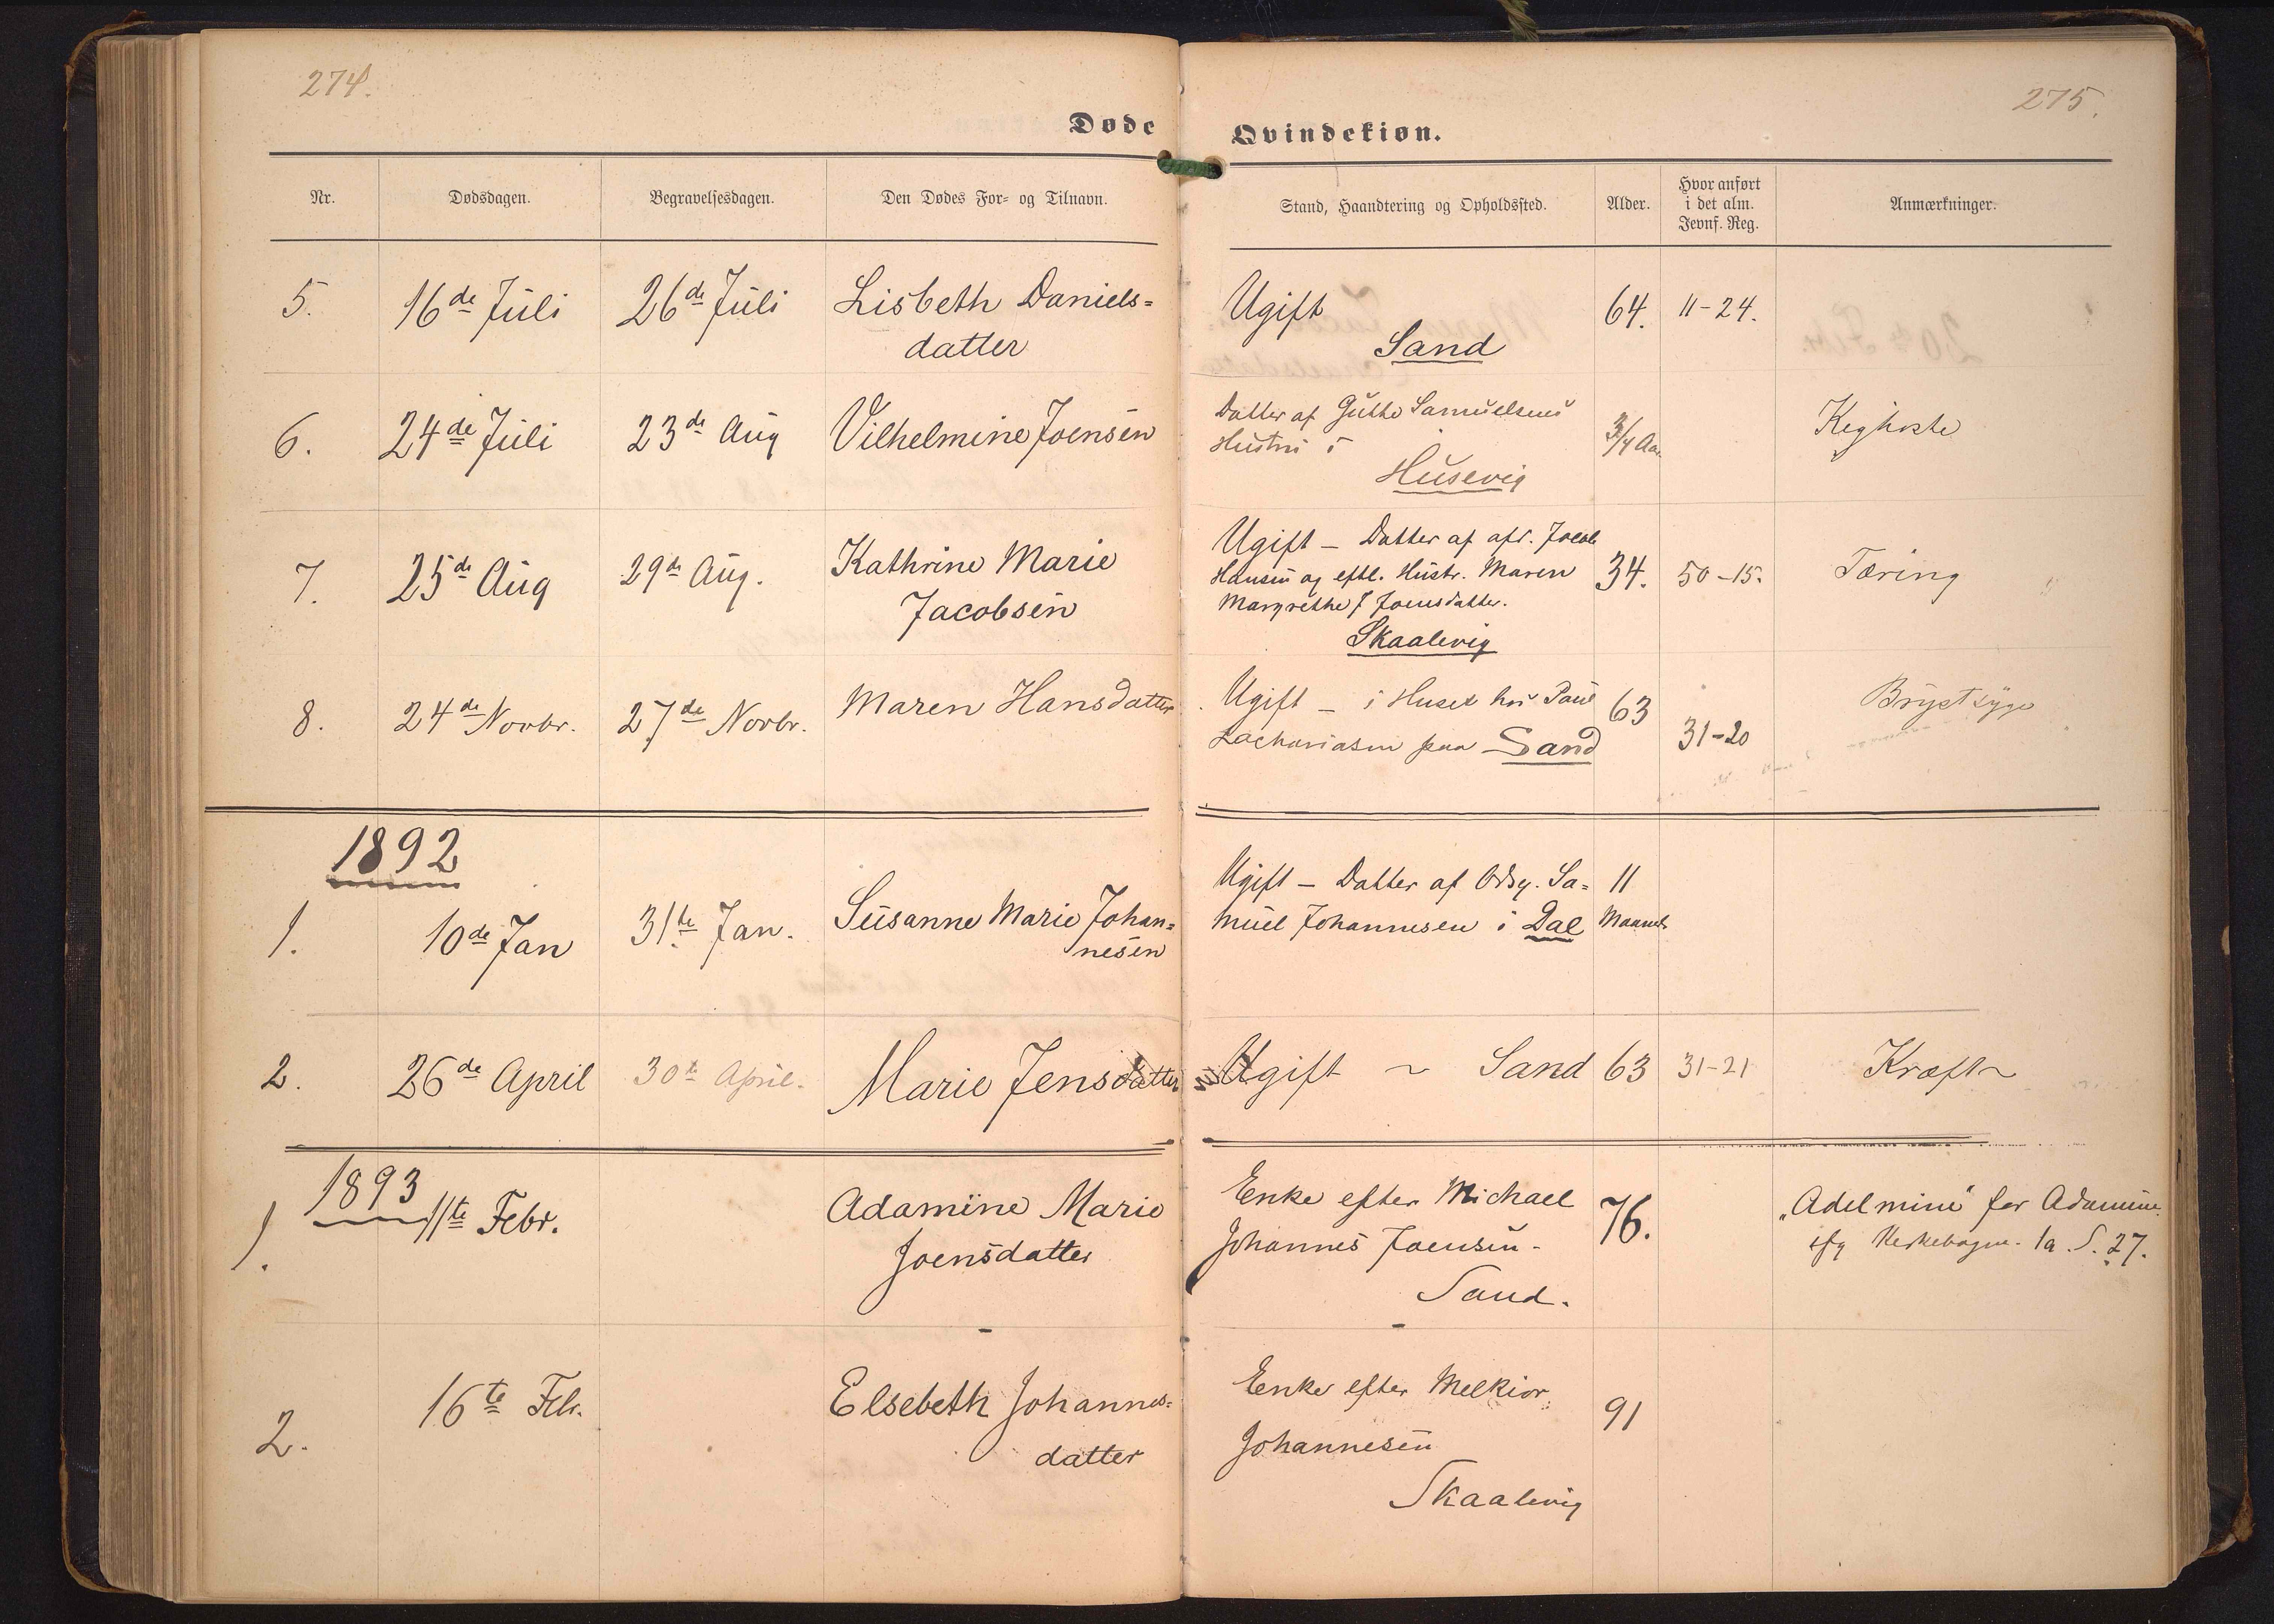 274.
275.
Døde
Qvindekiøn.
Nr.
Dødsdagen.
Begravelsesdagen.
Den Dødes For- og Tilnavn.
Stand, Haandtering og Opholdssted.
Alder.
Hvor anført
i det alm.
Jevnf. Reg.
Anmærkninger.
5.
16de Juli
26de Juli
Lisbeth Daniels-
datter
Ugift
Sand
64.
11-24.
6.
24de Juli
23de Aug
Vilhelmine Joensen
Datter af Gutte Samuelsens
Hustru i
Husevig
3/4 Aar
Kighoste
7.
25de Aug
29de Aug.
Kathrine Marie
Jacobsen
Ugift – Datter af afd. Jacob
Hansen og eftl. Hustr. Maren
Margrethe f Joensdatter.
Skaalevig
34.
50-15.
Tæring
8.
24de Novbr.
27de Novbr.
Maren Hansdatter
Ugift – i Huset hos Poul
Zachariasen paa Sand
63
31-20
Brystsyge
1892
1.
10de Jan
31te Jan.
Susanne Marie Johan-
nesen
Ugift – Datter af Odsg. Sa-
muel Johannesen i Dal
11
Maaneder
2.
26de April
30te April.
Marie Jensdatter
Ugift ~ Sand
63
31-21
Kræft
1893
1.
11te Febr.
Adamine Marie
Joensdatter
Enke efter Michael
Johannes Joensen -
Sand.
76.
„Adelmine" for Adamine
Kirkebogen. 1a. S. 27.
2.
16te Feb.
Elsebeth Johannes-
datter
Enke efter Melkior
Johannesen
Skaalevig
91